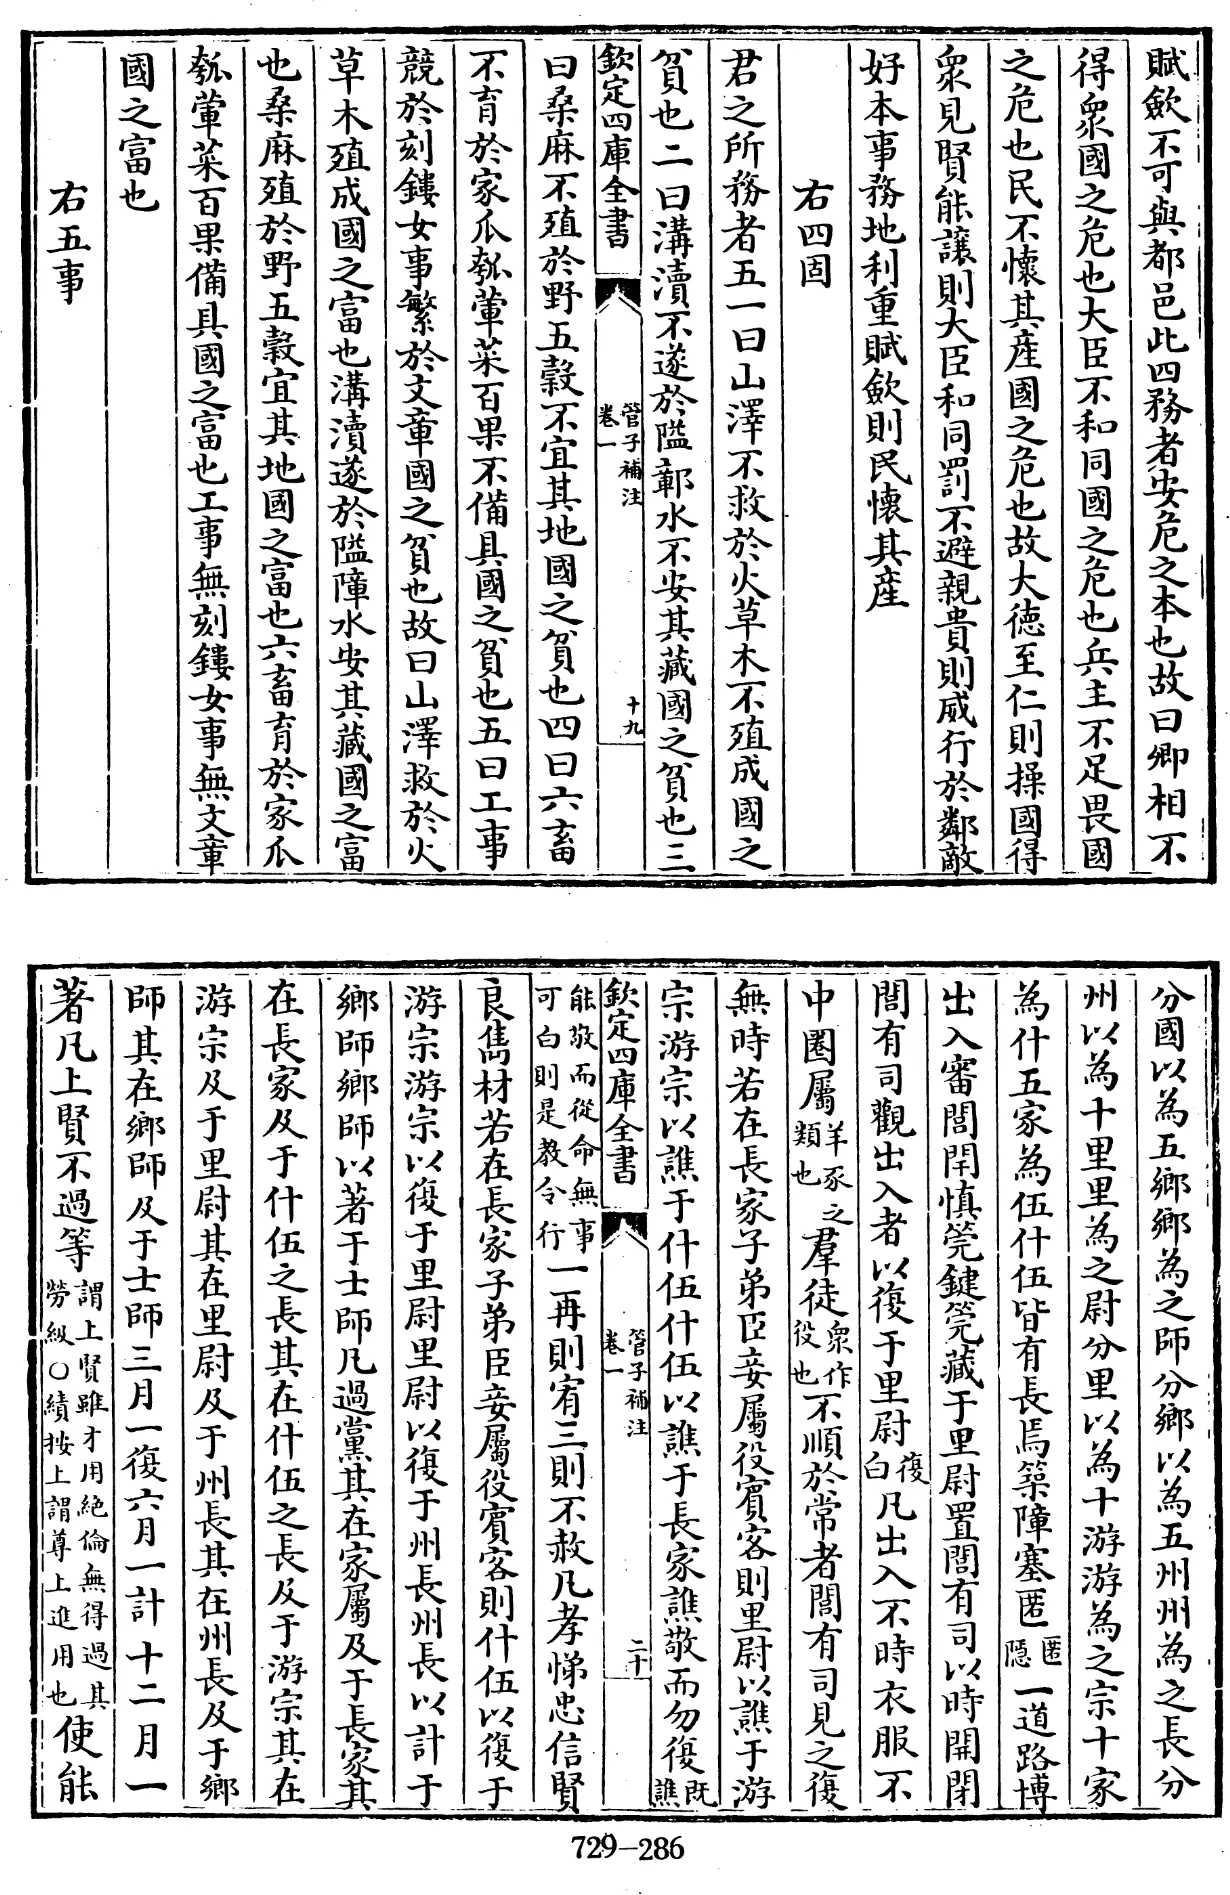 賦歛不可與都邑此四務者安危之本也故曰卿相不
得衆國之危也大臣不和同國之危也兵主不足畏國
之危也民不懷其産國之危也故大德至仁則操國得
衆見賢能讓則大臣和同罰不避親貴則威行於鄰敵
好本事務地利重賦歛則民懷其産
右四固
君之所務者五一曰山澤不救於火草木不殖成國之
貧也二曰溝瀆不遂於隘鄣水不安其藏國之貧也三
欽定四庫全書
管子補注
卷一
十九
曰桑麻不殖於野五穀不宜其地國之貧也四曰六畜
不育於家瓜瓠葷菜百果不備具國之貧也五曰工事
競於刻鏤女事繁於文章國之貧也故曰山澤救於火
草木殖成國之富也溝瀆遂於隘障水安其藏國之富
也桑麻殖於野五穀宜其地國之富也六畜育於家瓜
瓠葷菜百果備具國之富也工事無刻鏤女事無文章
國之富也
右五事
分國以為五鄉鄉為之師分鄉以為五州州為之長分
州以為十里里為之尉分里以為十游游為之宗十家
為什五家為伍什伍皆有長焉築障塞匿匿隱一道路博
出入審閭閈慎筦鍵筦藏于里尉置閭有司以時開閉
閭有司觀出入者以復于里尉復白凡出入不時衣服不
中圏屬羊豕之類也羣徒衆作役也不順於常者閭有司見之復
無時若在長家子弟臣妾屬役賓客則里尉以譙于游
宗游宗以譙于什伍什伍以譙于長家譙敬而勿復既譙
欽定四庫全書
管子補注
卷一
二十
能敬而從命無事可白則是教令行一再則宥三則不赦凡孝悌忠信賢
良雋材若在長家子弟臣妾屬役賓客則什伍以復于
游宗游宗以復于里尉里尉以復于州長州長以計于
鄉師鄉師以著于士師凡過黨其在家屬及于長家其
在長家及于什伍之長其在什伍之長及于游宗其在
游宗及于里尉其在里尉及于州長其在州長及于鄉
師其在鄉師及于士師三月一復六月一計十二月一
著凡上賢不過等謂上賢雖才用絶倫無得過其勞級○績按上謂尊上進用也使能
729-286